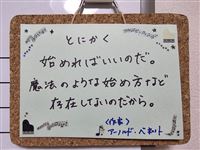 とにかく
始めればいいのだ。
魔法のような始め方など
存在しないのだから。
〈作家〉
アーノルド・ベネット